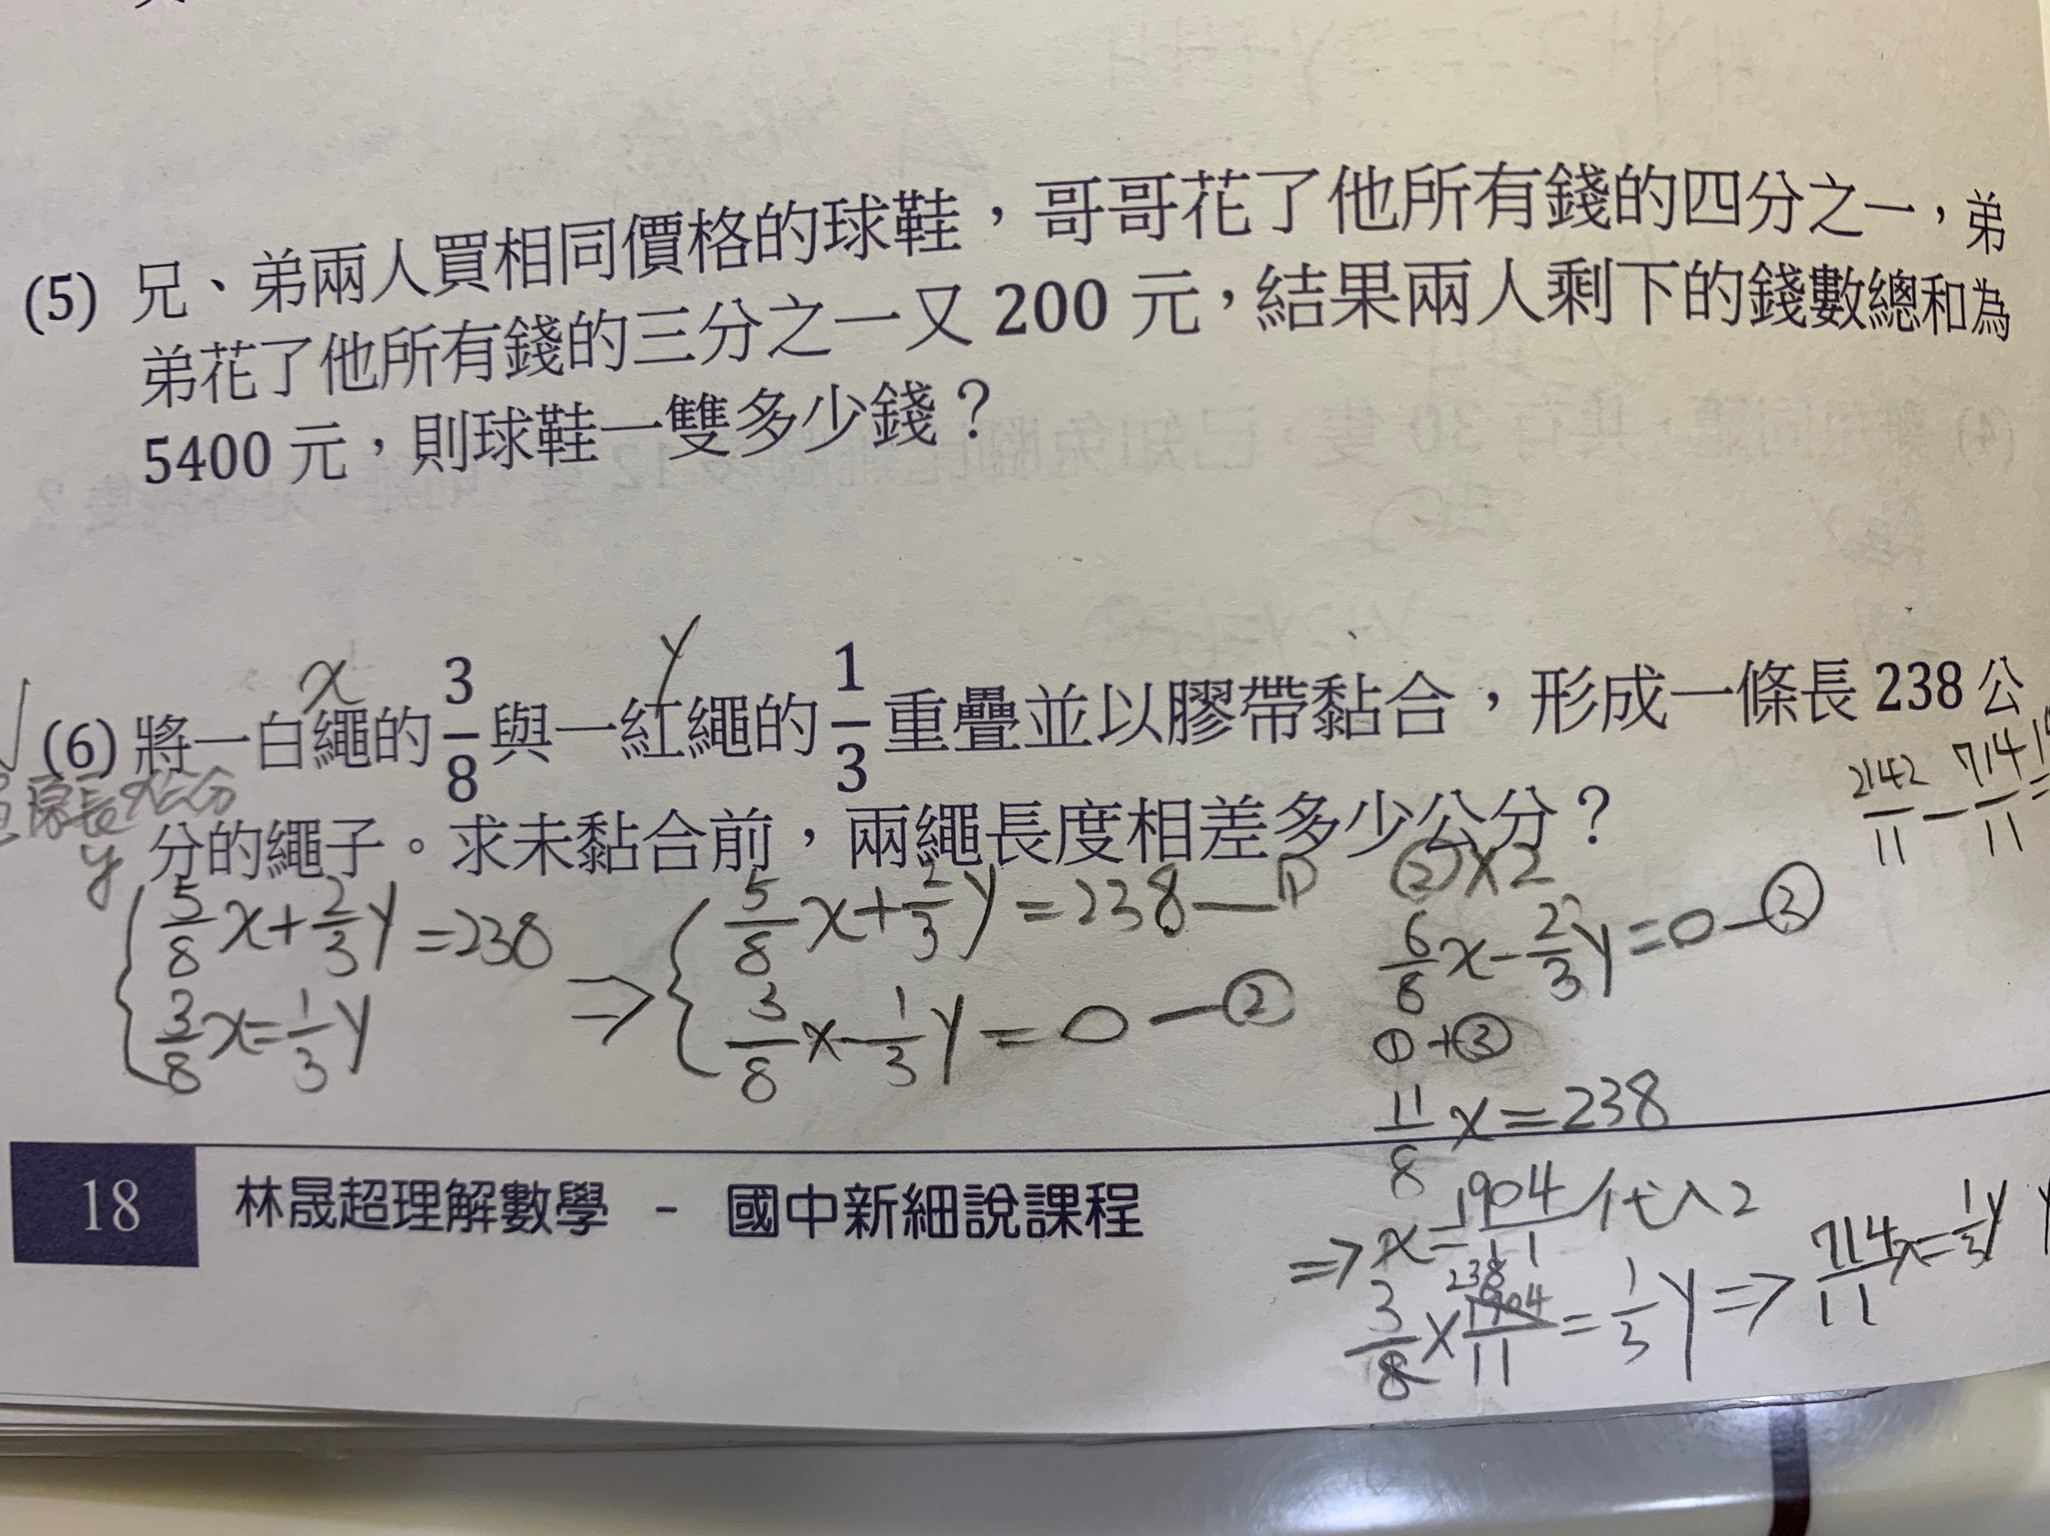 (5) 兄、弟兩人買相同價格的球鞋，哥哥花了他所有錢的四分之一，弟
弟花了他所有錢的三分之一又 200 元，結果兩人剩下的錢數總和為
5400 元，則球鞋一雙多少錢？
x y
(6) 將一白繩的 3/8 與一紅繩的 1/3 重疊並以膠帶黏合，形成一條長 238 公
原長 x公分
y
分的繩子。求未黏合前，兩繩長度相差多少公分？
2142/11 - 714/11 =
5/8 x + 2/3 y = 238
3/8 x = 1/3 y
⇒ 5/8 x + 2/3 y = 238 — ①
3/8 x - 1/3 y = 0 — ②
② × 2
6/8 x - 2/3 y = 0 — ③
① + ③
11/8 x = 238
⇒ x = 1904/11 代入2
238
3/8 × 1904/11 = 1/3 y ⇒ 714/11 x = 1/3 y
18 林晟超理解數學 - 國中新細說課程